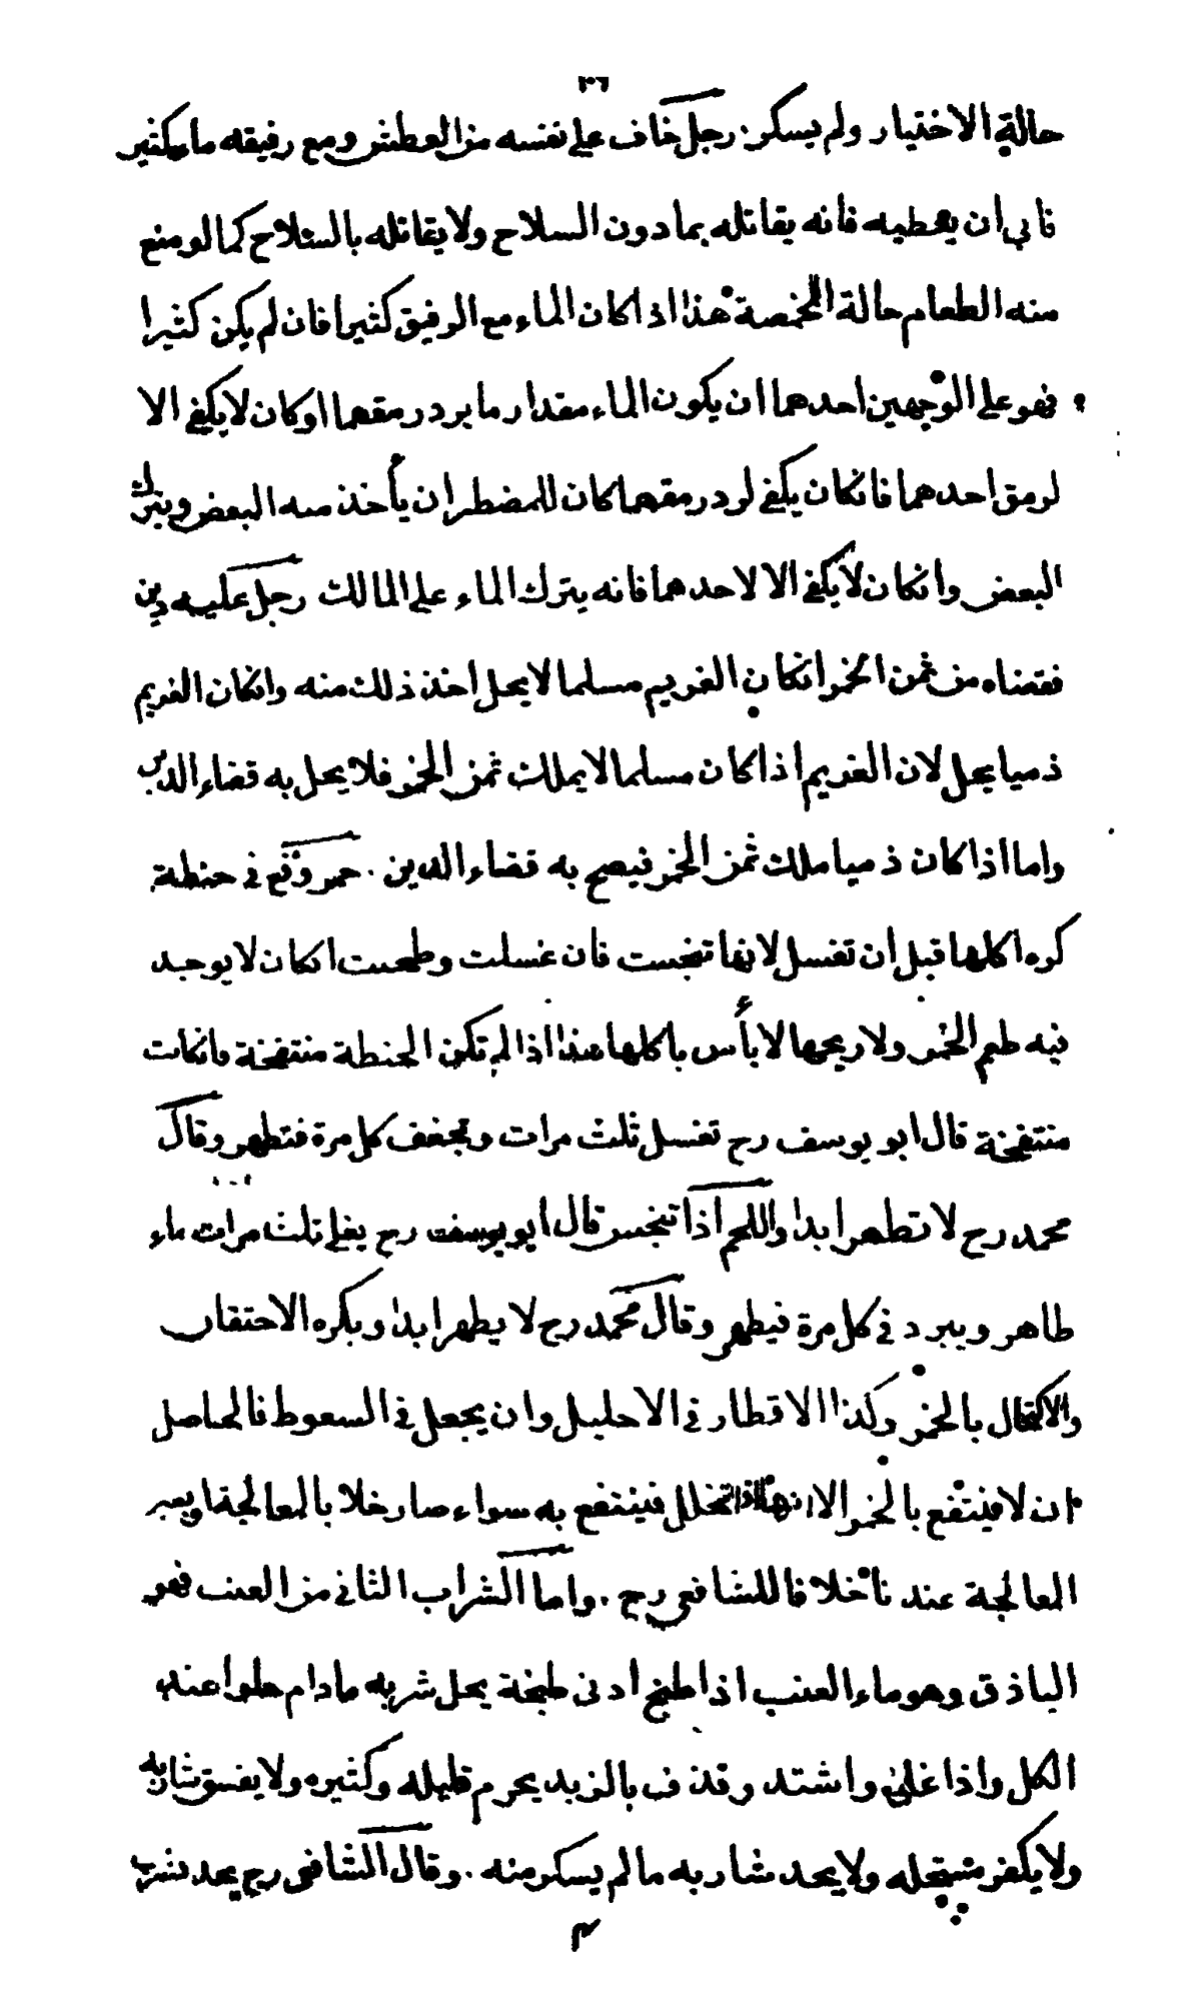 ٣٦
حالة الاختيار ولم يسكر. رجل خاف على نفسه من العطش ومع رفيقه ماء كثير
فابى ان يعطيه فانه يقاتله بما دون السلاح ولا يقاتله بالسلاح كما لو منع
منه الطعام حالة المخمصة هذا اذا كان الماء مع الرفيق كثيرا فان لم يكن كثيرا
فهو على الوجهين احدهما ان يكون الماء مقدار ما يرد رمقهما او كان لا يكفى الا
لرمق احدهما فانكان يكفى لرد رمقهما كان للمضطر ان يأخذ منه البعض ويترك
البعض وانكان لا يكفى الا لاحدهما فانه يترك الماء على المالك رجل عليه دين
فقضاه من ثمن الخمر انكان الغريم مسلما لا يحل اخذ ذلك منه وانكان الغريم
ذميا يحل لان الغريم اذا كان مسلما لا يملك ثمن الخمر فلا يحل به قضاء الدين
واما اذا كان ذميا ملك ثمن الخمر فيصح به قضاء الدين. خمر وقع فى حنطة
كره اكلها قبل ان تغسل لانها تنجست فان غسلت وطحنت انكان لا يوجد
فيه طعم الخمر ولا ريحها لا بأس باكلها هذا اذا لم تكن الحنطة منتفخة فانكانت
منتفخة قال ابو يوسف رح تغسل ثلث مرات وتجفف كل مرة فتطهر وقال
محمد رح لا تطهر ابدا واللحم اذا تنجس قال ابو يوسف رح يغلى ثلث مرات بماء
طاهر ويبرد فى كل مرة فيطهر وقال محمد رح لا يطهر ابدا ويكره الاحتقان
والاكتحال بالخمر وكذا الاقطار فى الاحليل وان يجعل فى السعوط فالحاصل
ان لا فينتفع بالخمر الا انها اذا تخلل فينتفع به سواء صار خلا بالمعالجة او بغير
المعالجة عندنا خلافا للشافعى رح. واما الشراب الثانى من العنب فهو
الباذق وهو ماء العنب اذا طبخ ادنى طبخة يحل شربه ما دام حلوا عند
الكل واذا غلى واشتد وقذف بالزبد يحرم قليله وكثيره ولا يفسق شاربه
ولا يكفر مستحله ولا يحد شاربه ما لم يسكر منه. وقال الشافعى رح يحد شرب